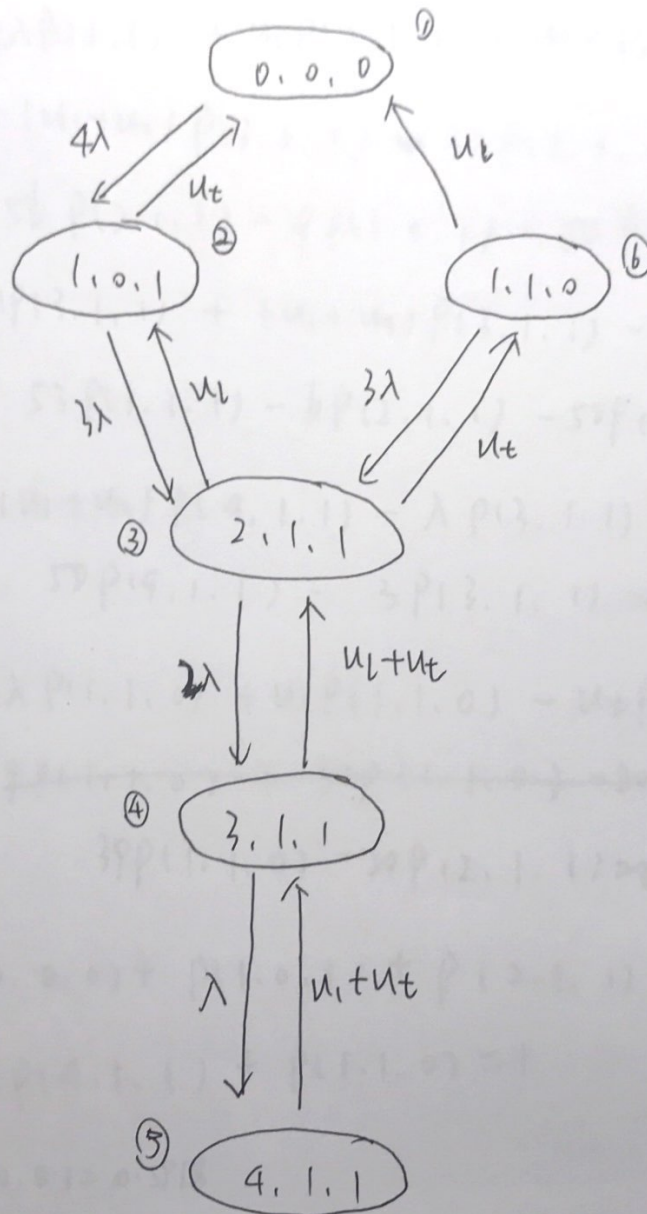 ①
0, 0, 0
4λ
u_t
u_t
②
⑥
1, 0, 1
1, 1, 0
3λ
u_l
3λ
u_t
③
2, 1, 1
2λ
u_l+u_t
④
3, 1, 1
λ
u_1+u_t
⑤
4, 1, 1